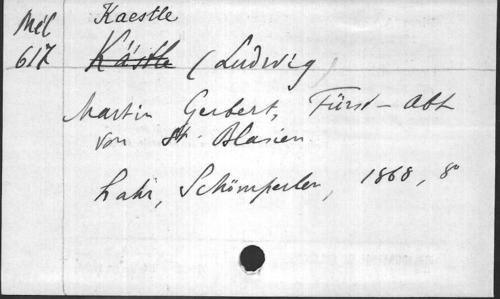 Mél
617
Kaestle
Kästle (Ludwig)
Martin Gerbert, Fürst-Abt
von St. Blasien.
Lahr, Schömperlen, 1868, 8°